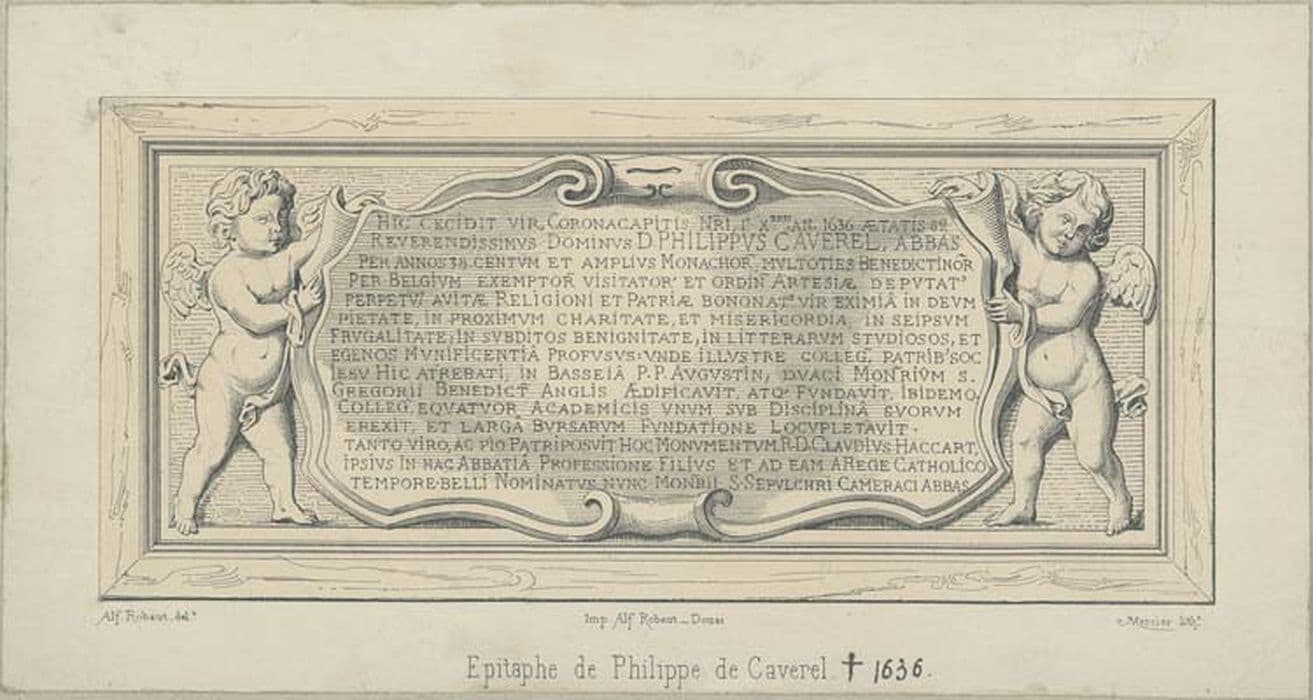 HIC CECIDIT VIR, CORONA CAPITIS NRI, 1ª XBRIS AN. 1636 ÆTATIS 82
REVERENDISSIMVS DOMINVS D. PHILIPPVS CAVEREL, ABBAS
PER ANNOS 38. CENTVM ET AMPLIVS MONACHOR̃, MVLTOTIES BENEDICTINOR̃
PER BELGIVM EXEMPTOR̃ VISITATOR ET ORDIN̄ ARTESIÆ DEPVTATꝰ
PERPETVꝰ AVITÆ RELIGIONI ET PATRIÆ BONO NATꝰ VIR EXIMIÂ IN DEVM
PIETATE, IN PROXIMVM CHARITATE, ET MISERICORDIA, IN SEIPSVM
FRVGALITATE, IN SVBDITOS BENIGNITATE, IN LITTERARVM STVDIOSOS, ET
EGENOS MVNIFICENTIÂ PROFVSVS: VNDE ILLVSTRE COLLEG, PATRIB' SOC
IESV HIC ATREBATI, IN BASSEIÂ P.P. AVGVSTIN, DVACI MON̄RIVM S.
GREGORII BENEDICT̄ ANGLIS ÆDIFICAVIT, ATQ. FVNDAVIT, IBIDEMQ,
COLLEG, EQVATVOR ACADEMICIS VNVM SVB DISCIPLINÂ SVORVM
EREXIT, ET LARGÂ BVRSARVM FVNDATIONE LOCVPLETAVIT.
TANTO VIRO, AC PIO PATRI POSVIT HOC MONVMENTVM. R.D. CLAVDIVS HACCART,
IPSIVS IN HAC ABBATIÂ PROFESSIONE FILIVS ET AD EAM A REGE CATHOLICO
TEMPORE BELLI NOMINATVS NVNC MON̄RII S. SEPVLCHRI CAMERACI ABBAS
Alf. Robaut, delt.
Imp. Alf Robaut _ Douai
Mercier lith.
Epitaphe de Philippe de Caverel † 1636.